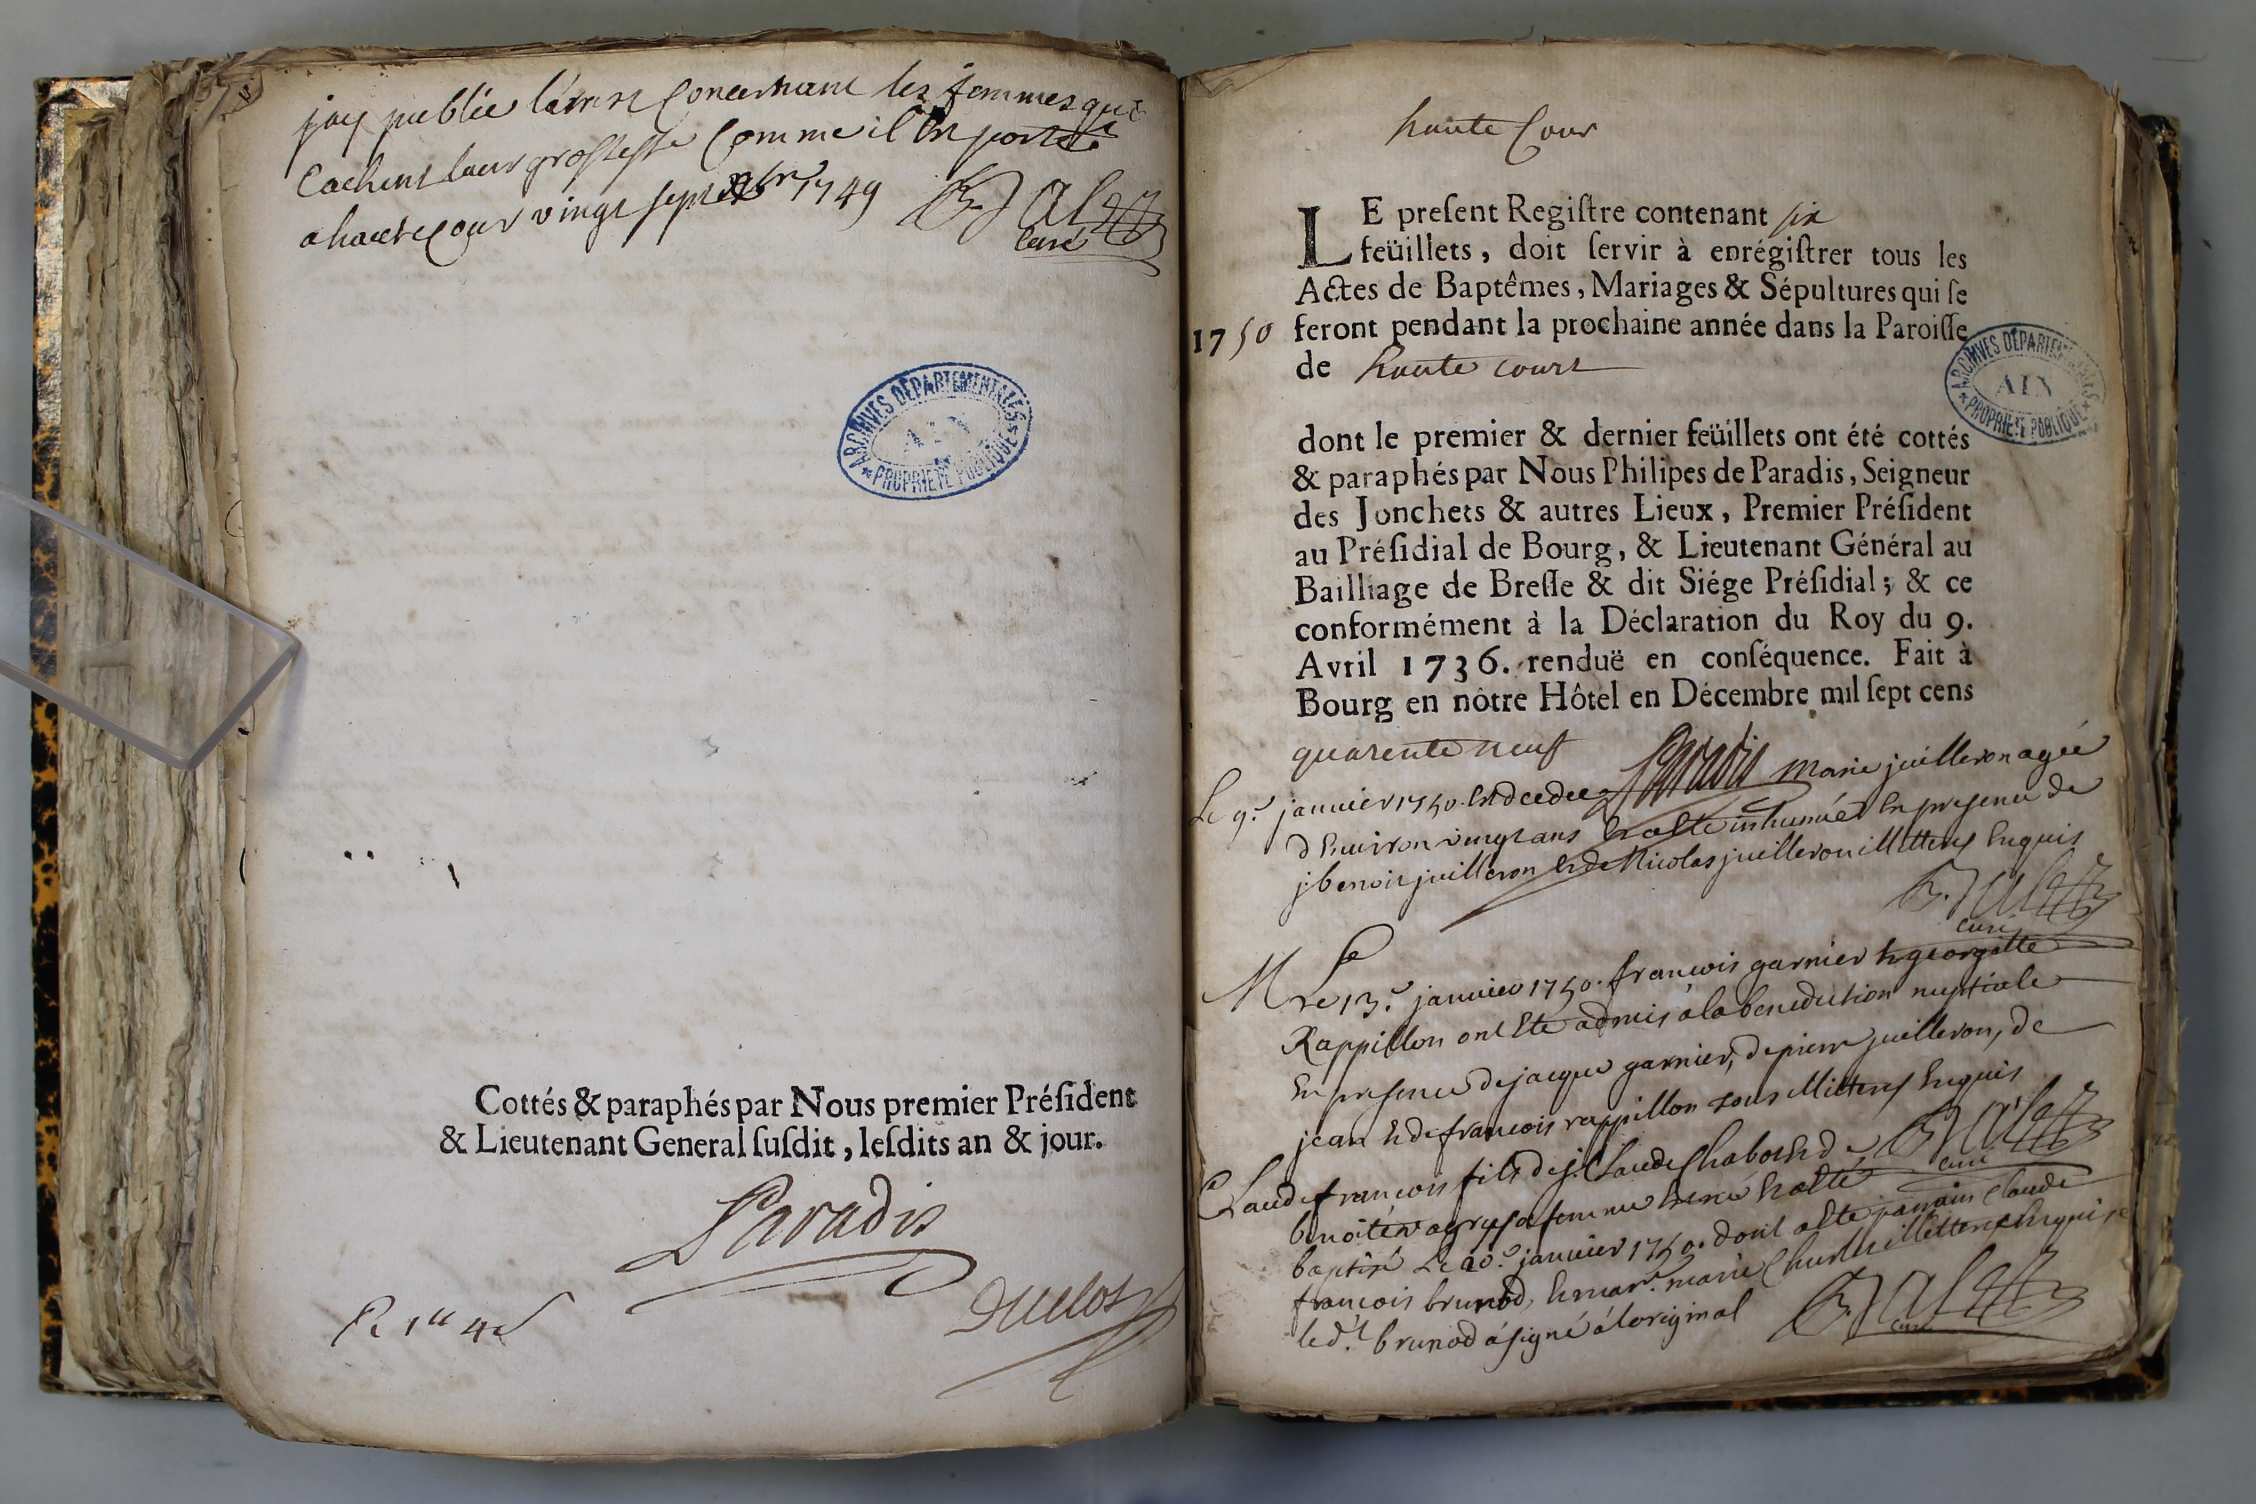 jay publié l'érrest concernant les femmes qui
cachent leur grossesse comme il est porté
a hautecour vingt sept xbre 1749
curé
ARCHIVES DEPARTEMENTALES
AIN
PROPRIETE PUBLIQUE
Cottés & paraphés par Nous premier Préſident
& Lieutenant General ſuſdit, leſdits an & jour.
Paradis
Duclos
haute Cour
LE preſent Regiſtre contenant six
feüillets, doit ſervir à enrégiſtrer tous les
Actes de Baptêmes, Mariages & Sépultures qui ſe
1750 feront pendant la prochaine année dans la Paroiſſe
de haute court
ARCHIVES DEPARTEMENTALES
AIN
PROPRIETE PUBLIQUE
dont le premier & dernier feüillets ont été cottés
& paraphés par Nous Philipes de Paradis, Seigneur
des Jonchets & autres Lieux, Premier Préſident
au Préſidial de Bourg, & Lieutenant Général au
Bailliage de Breſſe & dit Siége Préſidial; & ce
conformément à la Déclaration du Roy du 9.
Avril 1736. renduë en conſéquence. Fait à
Bourg en nôtre Hôtel en Décembre mil ſept cens
quarente neuf Paradis
Le 9.e janvier 1750. est decedée marie juilleron agée
d'environ vingt ans et a été inhumée en presence de
j benoit juilleron et de Nicolas juilleron illitterés enquis
curé
M Le 13.e janvier 1750. francois garnier et georgette
Rappillon ont été admis a la benediction nuptiale
en presence de jacque garnier, de pierre juilleron, de
jean et de francois rappillon tous illitterés enquis
curé
Claude francois fils de j. Claude Chabot et de
benoite sa femme est né et a été
baptisé Le 20.e janvier 1750. dont a été parrain Claude
francois brunod, et mar.e marie illitterée enquise
led.t brunod a signé a l'original
curé